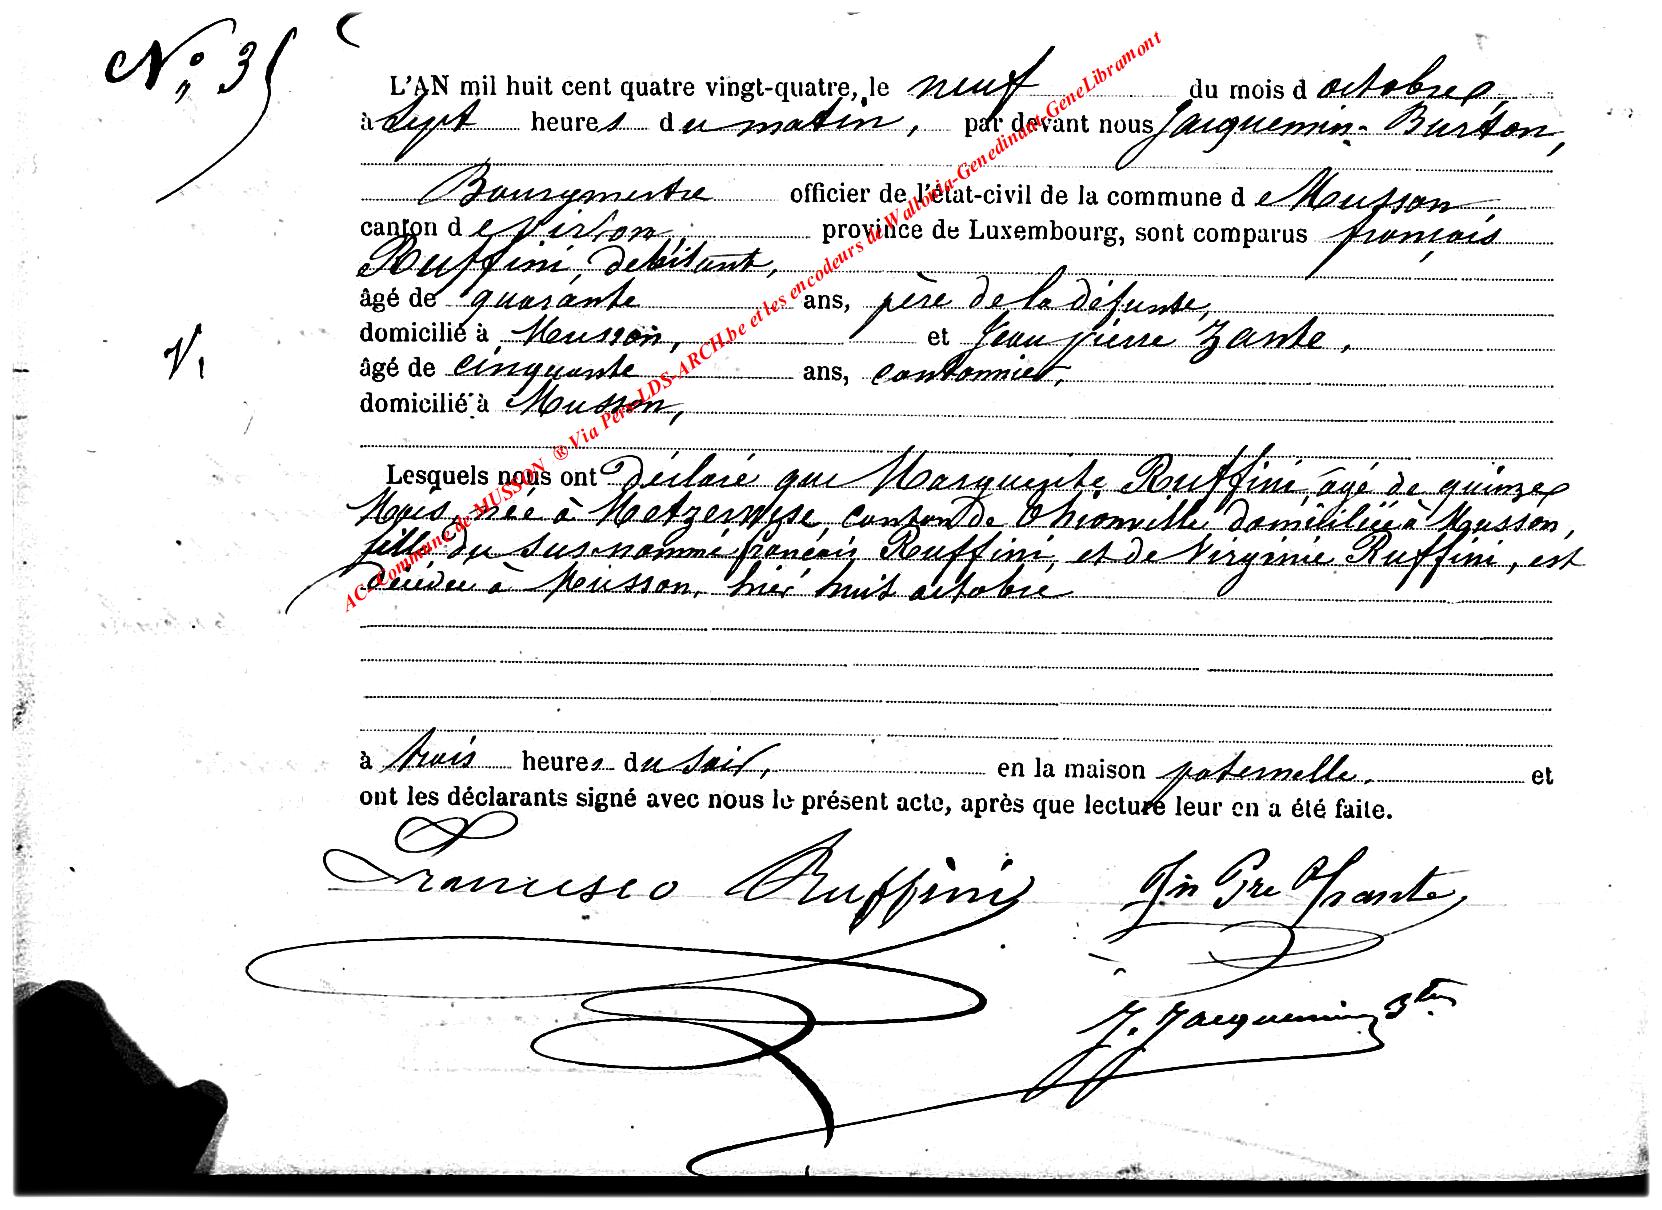 N° 35
L'AN mil huit cent quatre vingt-quatre, le neuf du mois d octobre,
à sept heures du matin, par devant nous Jacquemin-Burton,
Bourgmestre officier de l'état-civil de la commune de Musson,
canton de Virton, province de Luxembourg, sont comparus françois
Ruffini, débitant,
âgé de quarante ans, père de la défunte,
domicilié à Musson, et Jean pierre Zante,
âgé de cinquante ans, cantonnier,
V,
domicilié à Musson,
Lesquels nous ont Déclaré que Marguerite Ruffini, âgé de quinze
Mois, née à Metzerwise, canton de Thionville domiciliée à Musson,
fille du sus-nommé françois Ruffini, et de Virginie Ruffini, est
décédée à Musson, hier huit octobre
à trois heures du soir, en la maison paternelle, et
ont les déclarants signé avec nous le présent acte, après que lecture leur en a été faite.
Francisco Ruffini Jn Pre Zante
J. Jacquemin Btn
AC - Commune de MUSSON ® Via Pers-LDS-ARCH.be et les encodeurs de Wallonia-Genedinant-GeneLibramont